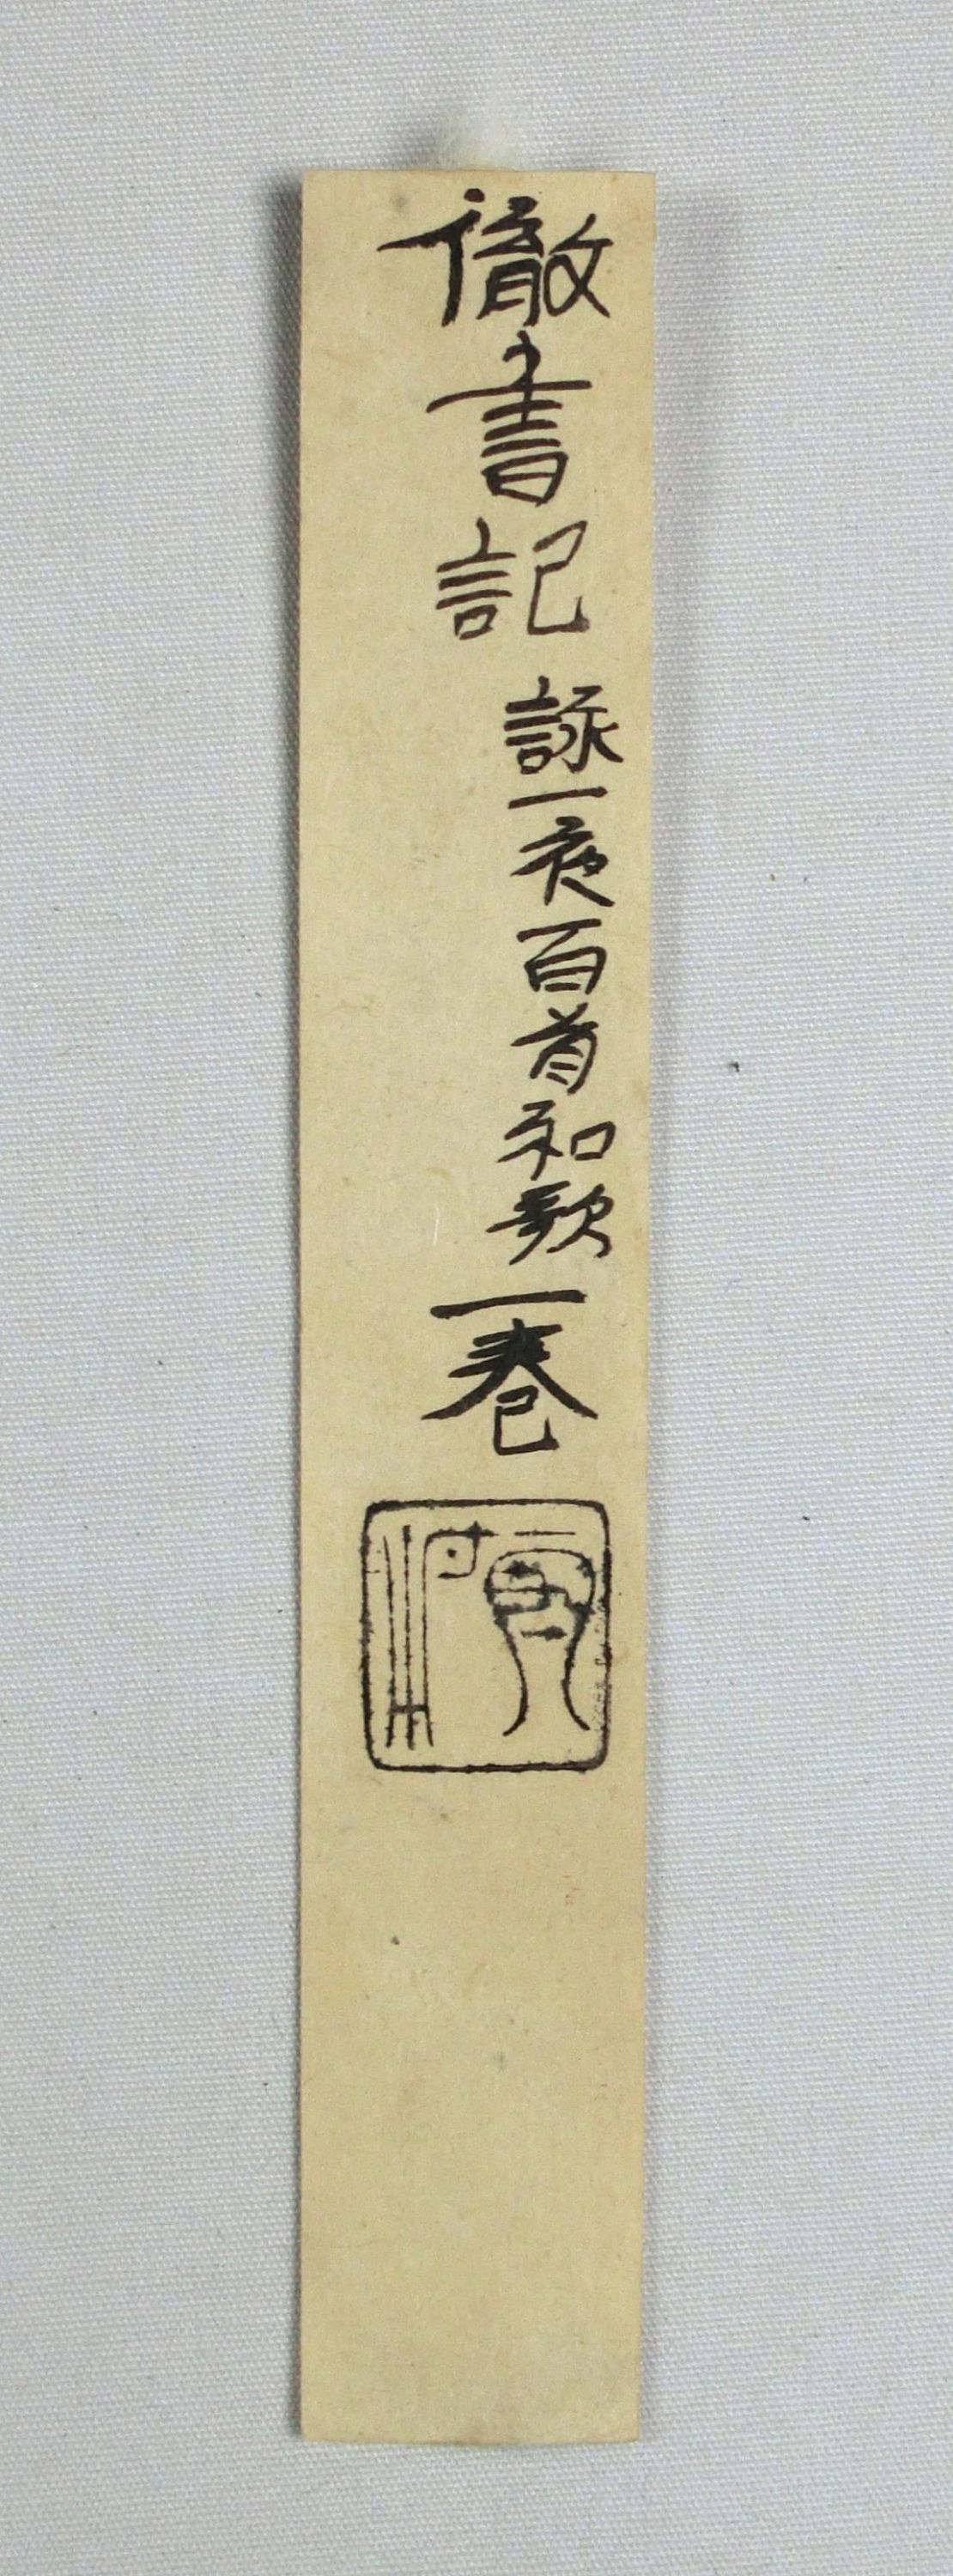 徹書記
詠一夜百首和歌
一巻